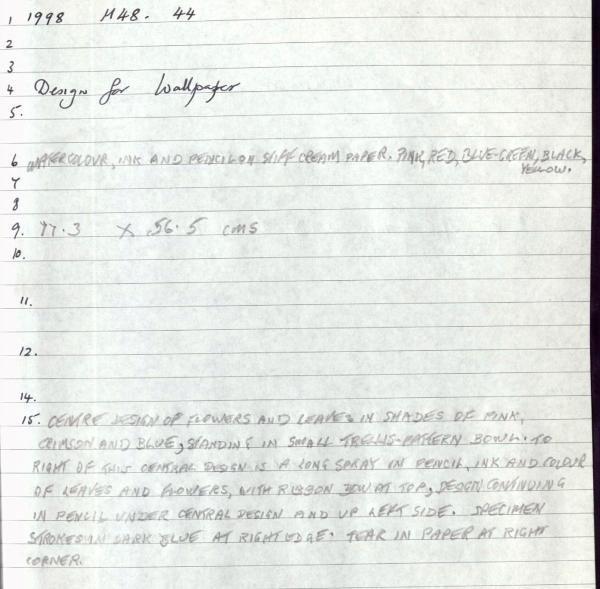 1 1998 M48. 44
2
3
4 Design for Wallpaper
5.
6 WATERCOLOUR, INK AND PENCIL ON STIFF CREAM PAPER. PINK, RED, BLUE-GREEN, BLACK,
YELLOW.
7
8
9. 77.3 X 56.5 cms
10.
11.
12.
14.
15. CENTRE DESIGN OF FLOWERS AND LEAVES IN SHADES OF PINK,
CRIMSON AND BLUE, STANDING IN SMALL TRELLIS-PATTERN BOWL. TO
RIGHT OF THIS CENTRAL DESIGN IS A LONG SPRAY IN PENCIL, INK AND COLOUR
OF LEAVES AND FLOWERS, WITH RIBBON BOW AT TOP, DESIGN CONTINUING
IN PENCIL UNDER CENTRAL DESIGN AND UP LEFT SIDE. SPECIMEN
STROKES IN DARK BLUE AT RIGHT EDGE. TEAR IN PAPER AT RIGHT
CORNER.